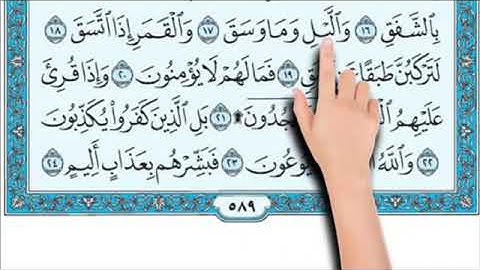 بِالشَّفَقِ ١٦ وَالَّيْلِ وَمَا وَسَقَ ١٧ وَالْقَمَرِ إِذَا اتَّسَقَ ١٨
لَتَرْكَبُنَّ طَبَقًا ١٩ فَمَا لَهُمْ لَا يُؤْمِنُونَ ٢٠ وَإِذَا قُرِئَ
عَلَيْهِمُ ۩ ٢١ بَلِ الَّذِينَ كَفَرُوا۟ يُكَذِّبُونَ
٢٢ وَاللَّهُ يُوعُونَ ٢٣ فَبَشِّرْهُم بِعَذَابٍ أَلِيمٍ ٢٤
٥٨٩